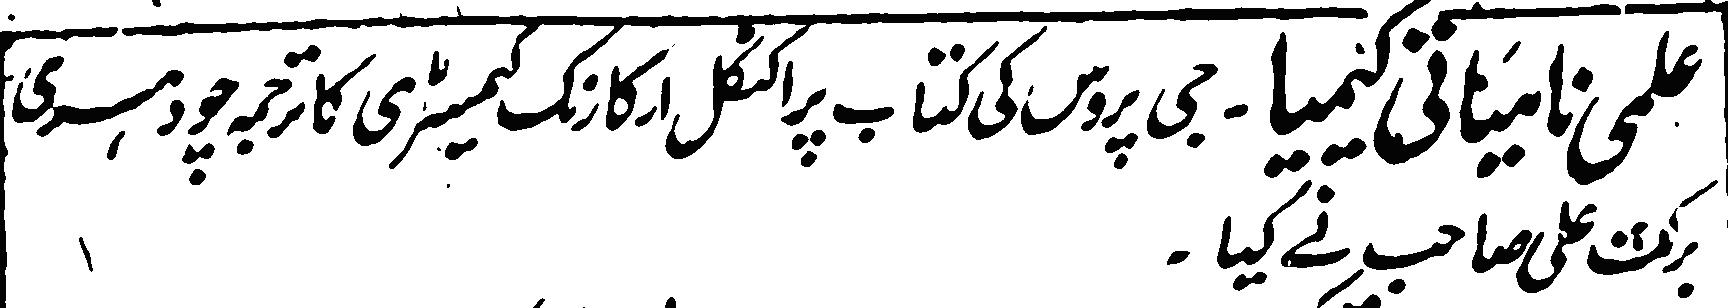 علمی نامیاتی کیمیا ۔ جی پروس کی کتاب پراکٹکل ارگانک کیمیسٹری کا ترجمہ چودہری
برکت علی صاحب نے کیا ۔